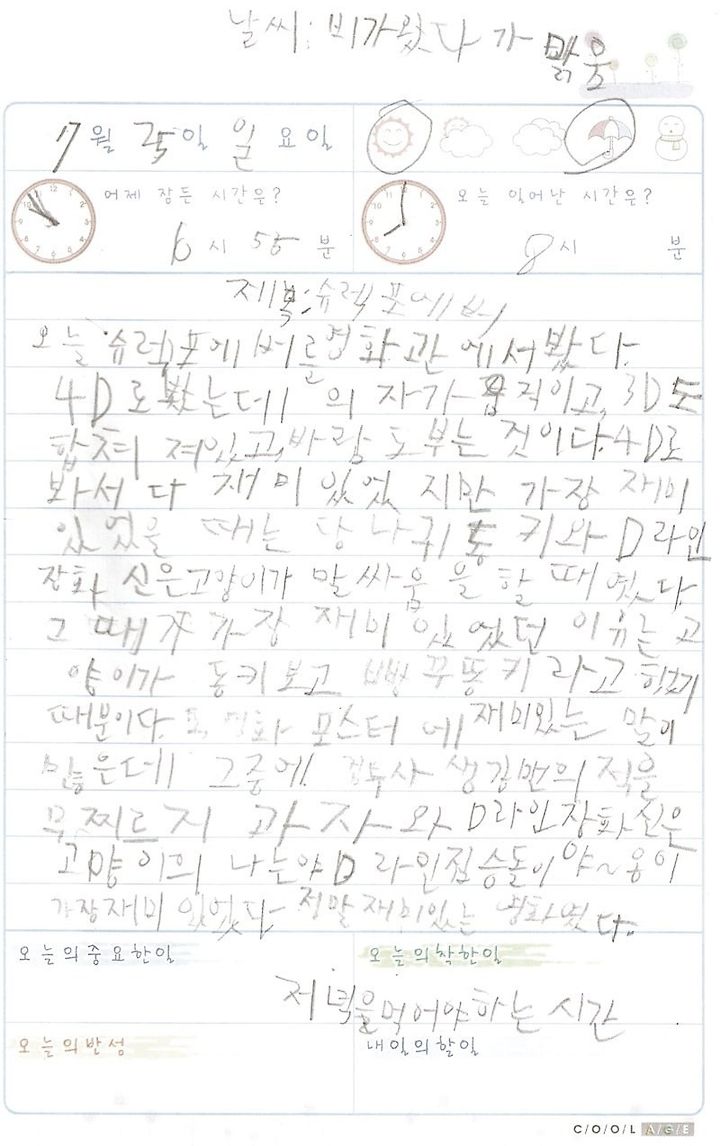 날씨: 비가왔다 가 맑음
7월 25일 일요일
어제 잠든 시간은?
오늘 일어난 시간은?
6시 55분
8시 분
제목: 슈렉포에버
오늘 슈렉포에버를 영화관에서 봤다.
4D로 봤는데 의자가 움직이고, 3D도
합쳐져있고, 바람도 부는 것이다. 4D로
봐서 다 재미있었지만 가장 재미
있었을 때는 당나귀 동키와 D라인
장화 신은고양이가 말싸움을 할 때였다.
그 때가 가장 재미있었던 이유는 고
양이가 동키보고 빵꾸똥키라고 했기
때문이다. 또, 영화 포스터에 재미있는 말이
많은데 그중에 검투사 생강맨의 적을
무찌르지 과자와 D라인장화신은
고양이의 나는야D라인짐승돌이야~옹이
가장재미있었다. 정말재미있는 영화였다.
오늘의중요한일
오늘의착한일
저녁을먹어야하는 시간
오늘의반성
내일의할일
C/O/O/L A/G/E